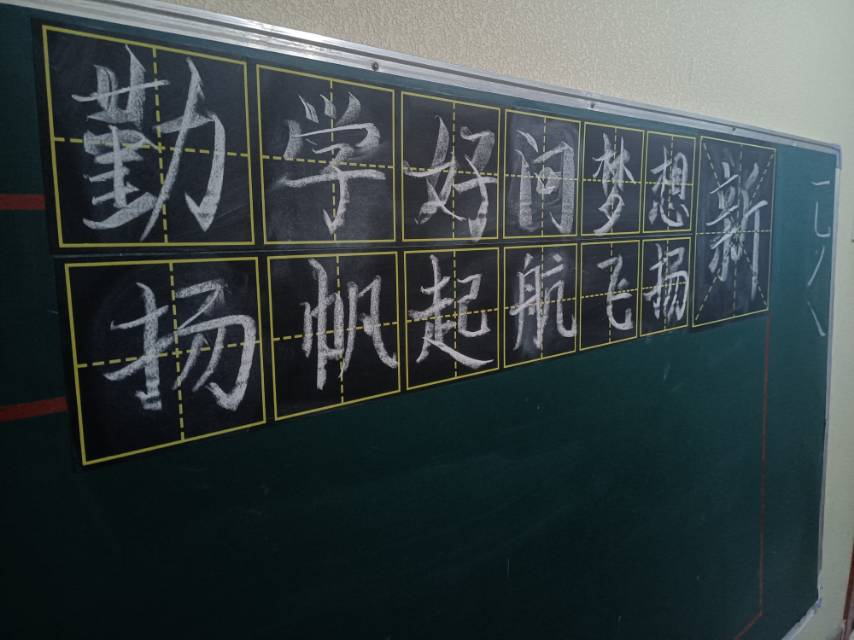 勤学好问梦想新
扬帆起航飞扬